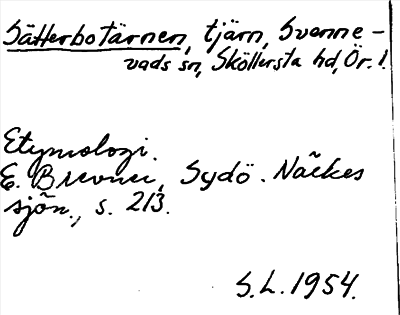 Sätterbotärnen, tjärn, Svenne-
vads sn, Sköllersta hd, Ör. l.
Etymologi.
E. Brevner, Sydö. Närkes
sjön., s. 213.
S.L. 1954.